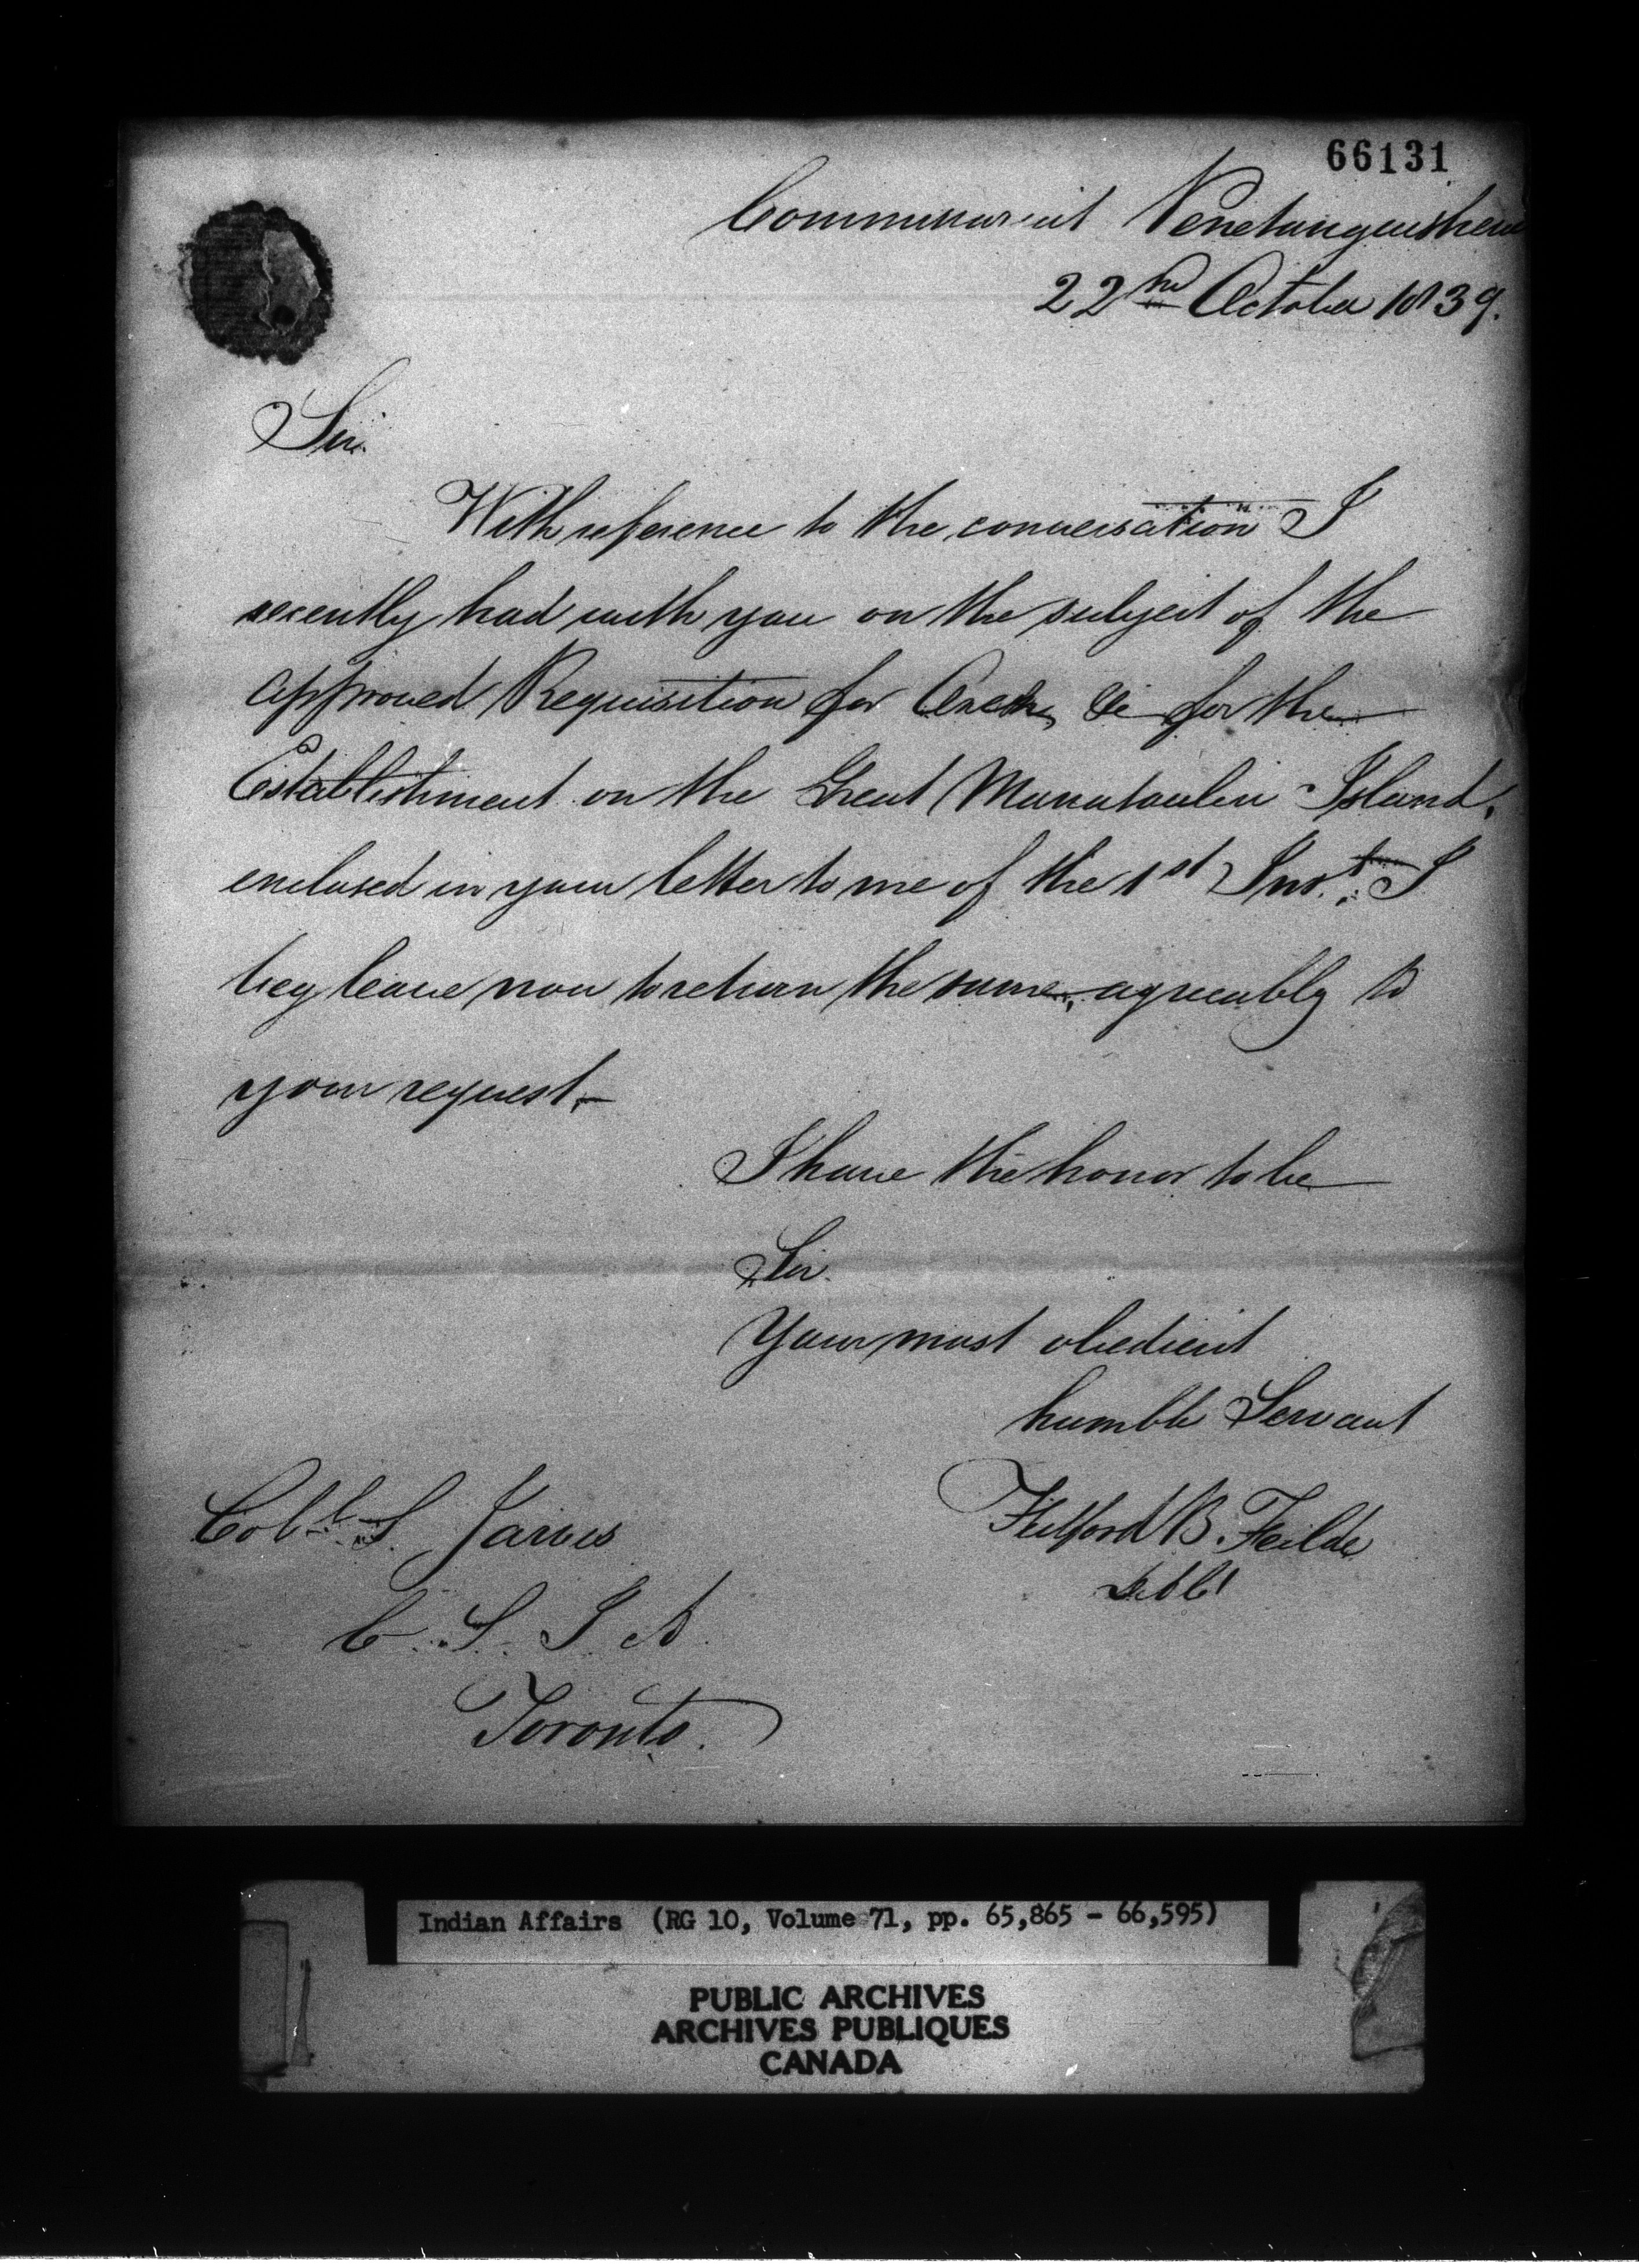 66131
Commissariat Penetanguishene
22nd October 1839.
Sir.
With reference to the conversation I
recently had with you on the subject of the
approved Requisition for Axes, &c for the
Establishment on the Great Manatoulin Island,
enclosed in your letter to me of the 1st Inst. I
beg leave now to return the same, agreeably to
your request.
I have the honor to be
Sir.
Your most obedient
humble Servant
Fulford B. Feilde
Coll. S Jarvis
C. S. I A.
Toronto.
Indian Affairs (RG 10, Volume 71, pp. 65,865 - 66,595)
PUBLIC ARCHIVES
ARCHIVES PUBLIQUES
CANADA